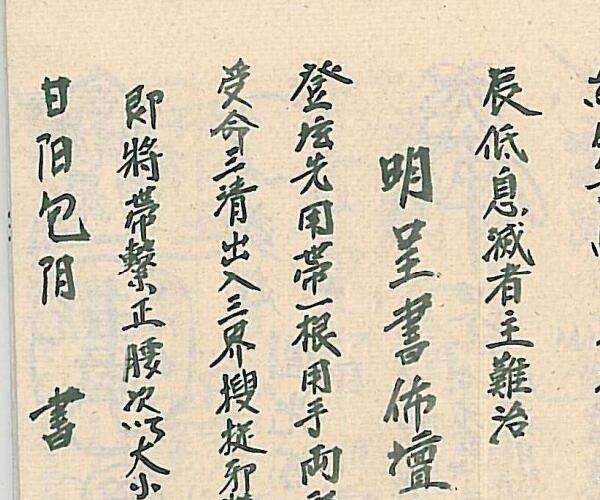 辰低息减者主難治
明呈書佈壇
登坛先用带一根用手両
受命三清出入三界搜捉邪
即將带繫正腰次以大小
甘阳包阴 書